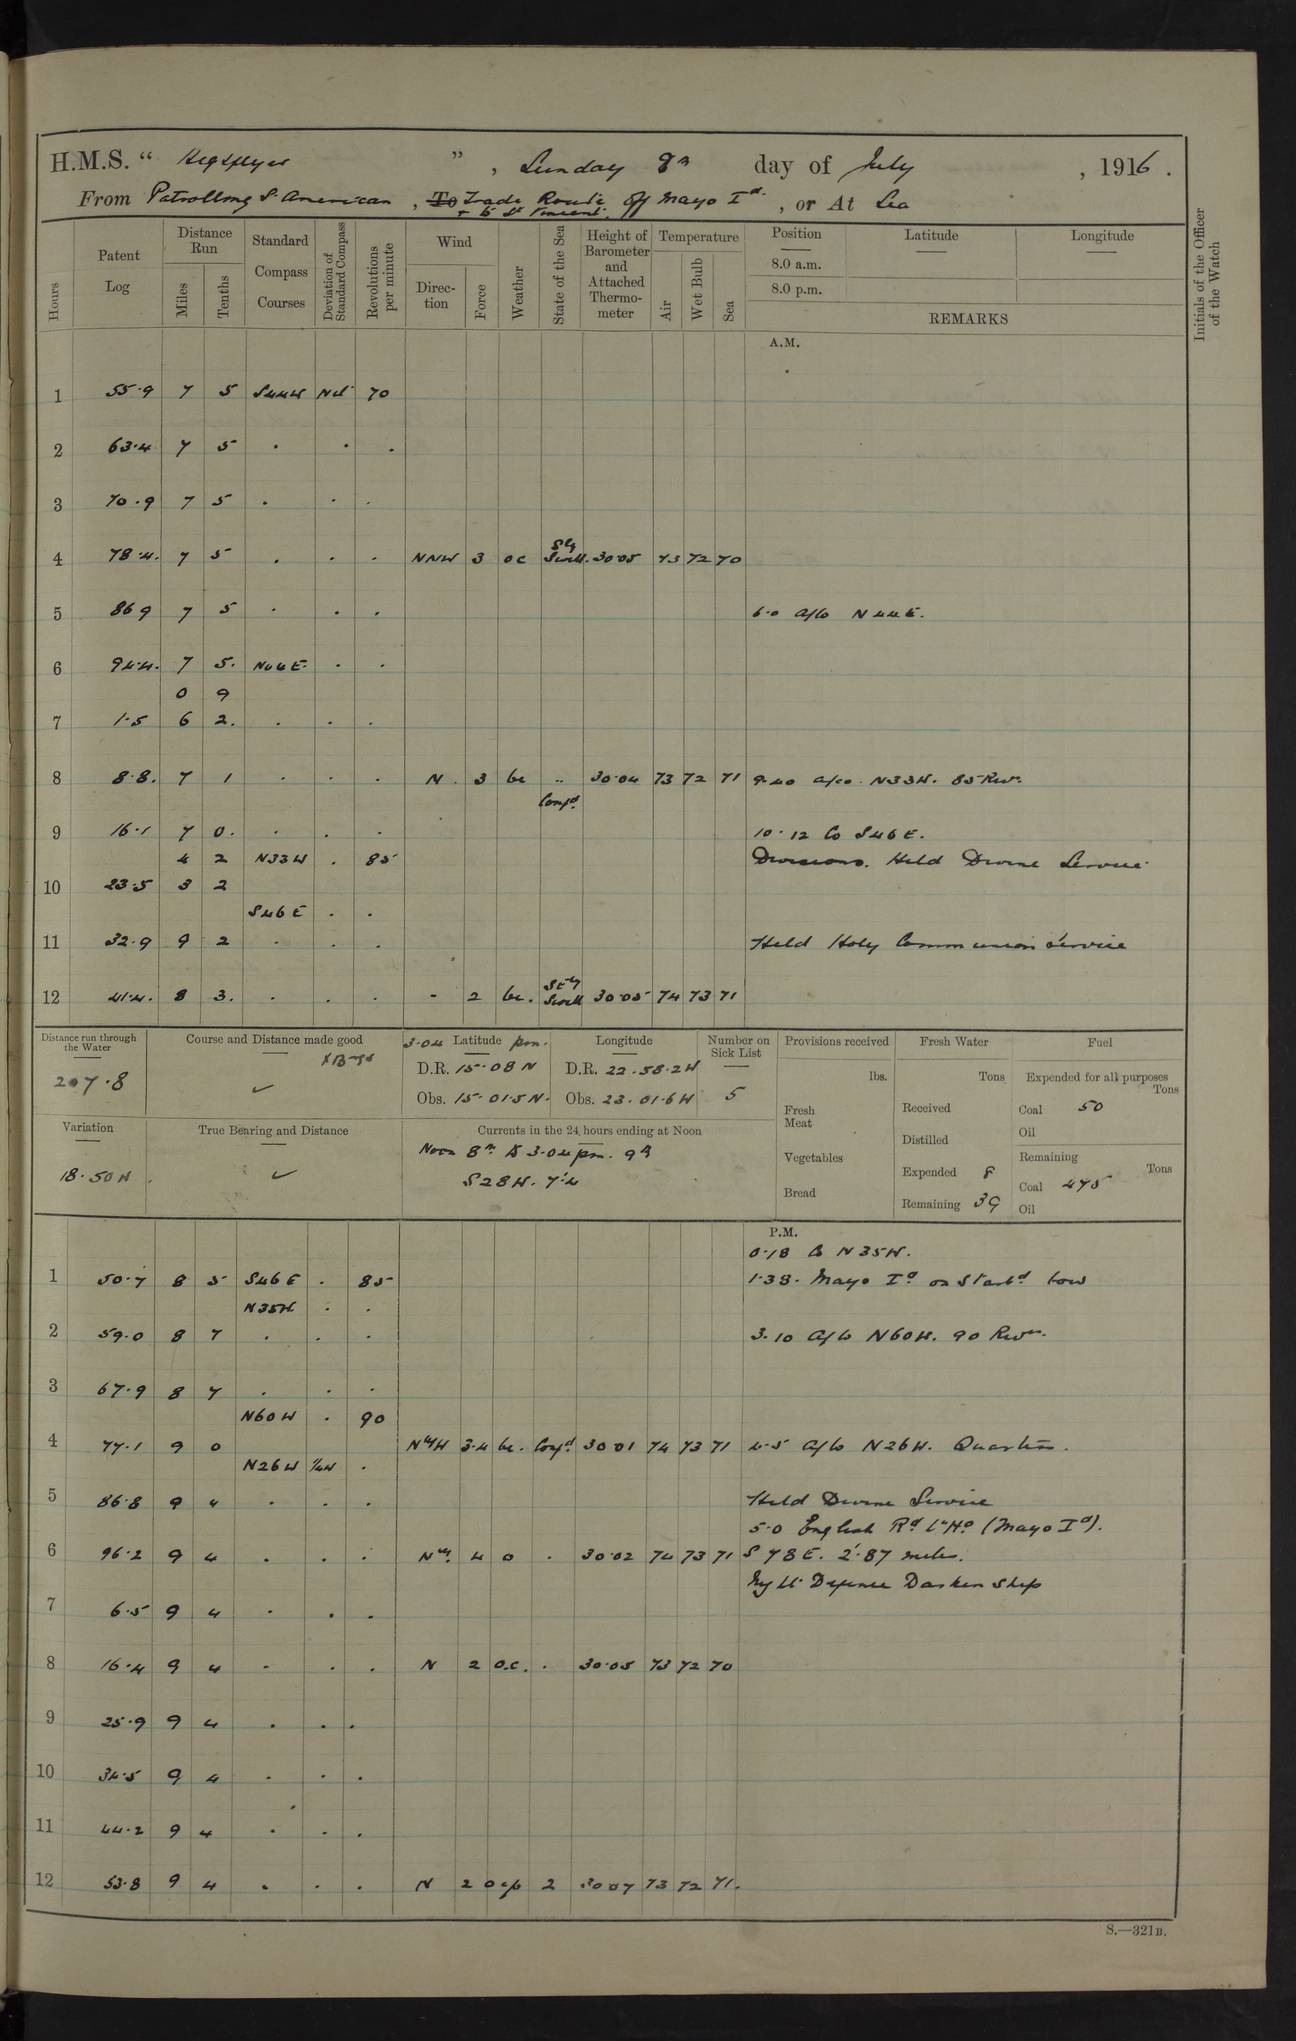 H.M.S. “ Highflyer ” , Sunday 9th day of July , 1916 .
From Patrolling S. American , To Trade Route off Mayo Id. , or At Sea
& to St Vincent.
Hours Patent Log Distance Run Miles Tenths Standard Compass Courses Deviation of Standard Compass Revolutions per minute Wind Direction Force Weather State of the Sea Height of Barometer and Attached Thermometer Temperature Air Wet Bulb Sea Position 8.0 a.m. 8.0 p.m. Latitude Longitude REMARKS Initials of the Officer of the Watch
A.M.
1 55.9 7 5 S44W Nil 70
2 63.4 7 5 . . .
3 70.9 7 5 . . .
4 78.4. 7 5 . . . NNW 3 oc Sly Swell. 30.05 73 72 70
5 86 9 7 5 . . . 6.0 a/co N44E.
6 94.4. 7 5. N44E. . .
0 9
7 1.5 6 2. . . .
8 8.8. 7 1 . . . N. 3 bc .. 30.04 73 72 71 9.40 a/co. N33W. 85 Revs.
Conf'd.
9 16.1 7 0. . . . 10.12 Co S46E.
4 2 N33W . 85 Divisions. Held Divine Service
10 23.5 3 2
S46E . .
11 32.9 9 2 . . . Held Holy Communion Service
12 41.4. 8 3. . . . - 2 bc. SEly Swell 30.05 74 73 71
Distance run through the Water 207.8
Course and Distance made good ✓
3.04 Latitude pm. D.R. 15.08 N Obs. 15.01.5 N.
Longitude D.R. 22.58.2W Obs. 23.01.6 W
Number on Sick List 5
Provisions received lbs. Fresh Meat Vegetables Bread
Fresh Water Tons Received Distilled Expended 8 Remaining 39
Fuel Expended for all purposes Tons Coal 50 Oil Remaining Tons Coal 475 Oil
Variation 18.50 W.
True Bearing and Distance ✓
Currents in the 24 hours ending at Noon
Noon 8th to 3.04 pm. 9th
S28W. 7'.4
P.M.
0.18 Co N35W.
1 50.7 8 5 S46E . 85 1.38. Mayo Id on Starbd bow
N35W . .
2 59.0 8 7 . . . 3.10 a/co N60W. 90 Revs.
3 67.9 8 7 . . .
N60W . 90
4 77.1 9 0 NlyW 3.4 bc. Conf'd. 30 01 74 73 71 4.5 a/co N26W. Quarters.
N26W ¼W .
5 86.8 9 4 . . . Held Divine Service
5.0 English Rd Lt Ho (Mayo Id).
6 96.2 9 4 . . . Nly. 4 o . 30.02 74 73 71 S 78 E. 2'.87 miles.
Ngt Defence Darken Ship
7 6.5 9 4 . . .
8 16.4 9 4 . . . N 2 o.c. . 30.05 73 72 70
9 25.9 9 4 . . .
10 34.5 9 4 . . .
11 44.2 9 4 . . .
12 53.8 9 4 . . . N 2 ocp 2 30 07 73 72 71.
S.—321B.